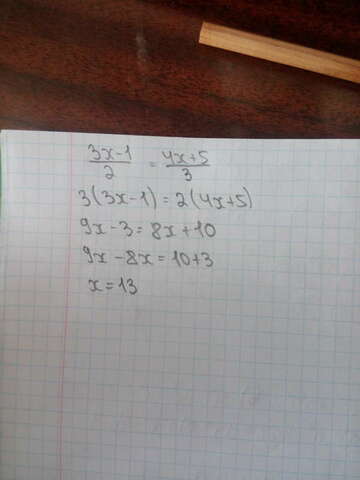 3x-1/2 = 4x+5/3
3(3x-1)=2(4x+5)
9x-3=8x+10
9x-8x=10+3
x=13